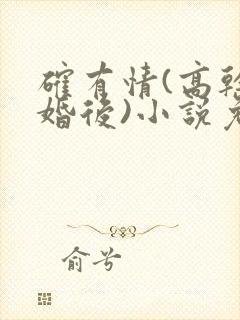 確有情(高幹
婚後)小說
俞兮